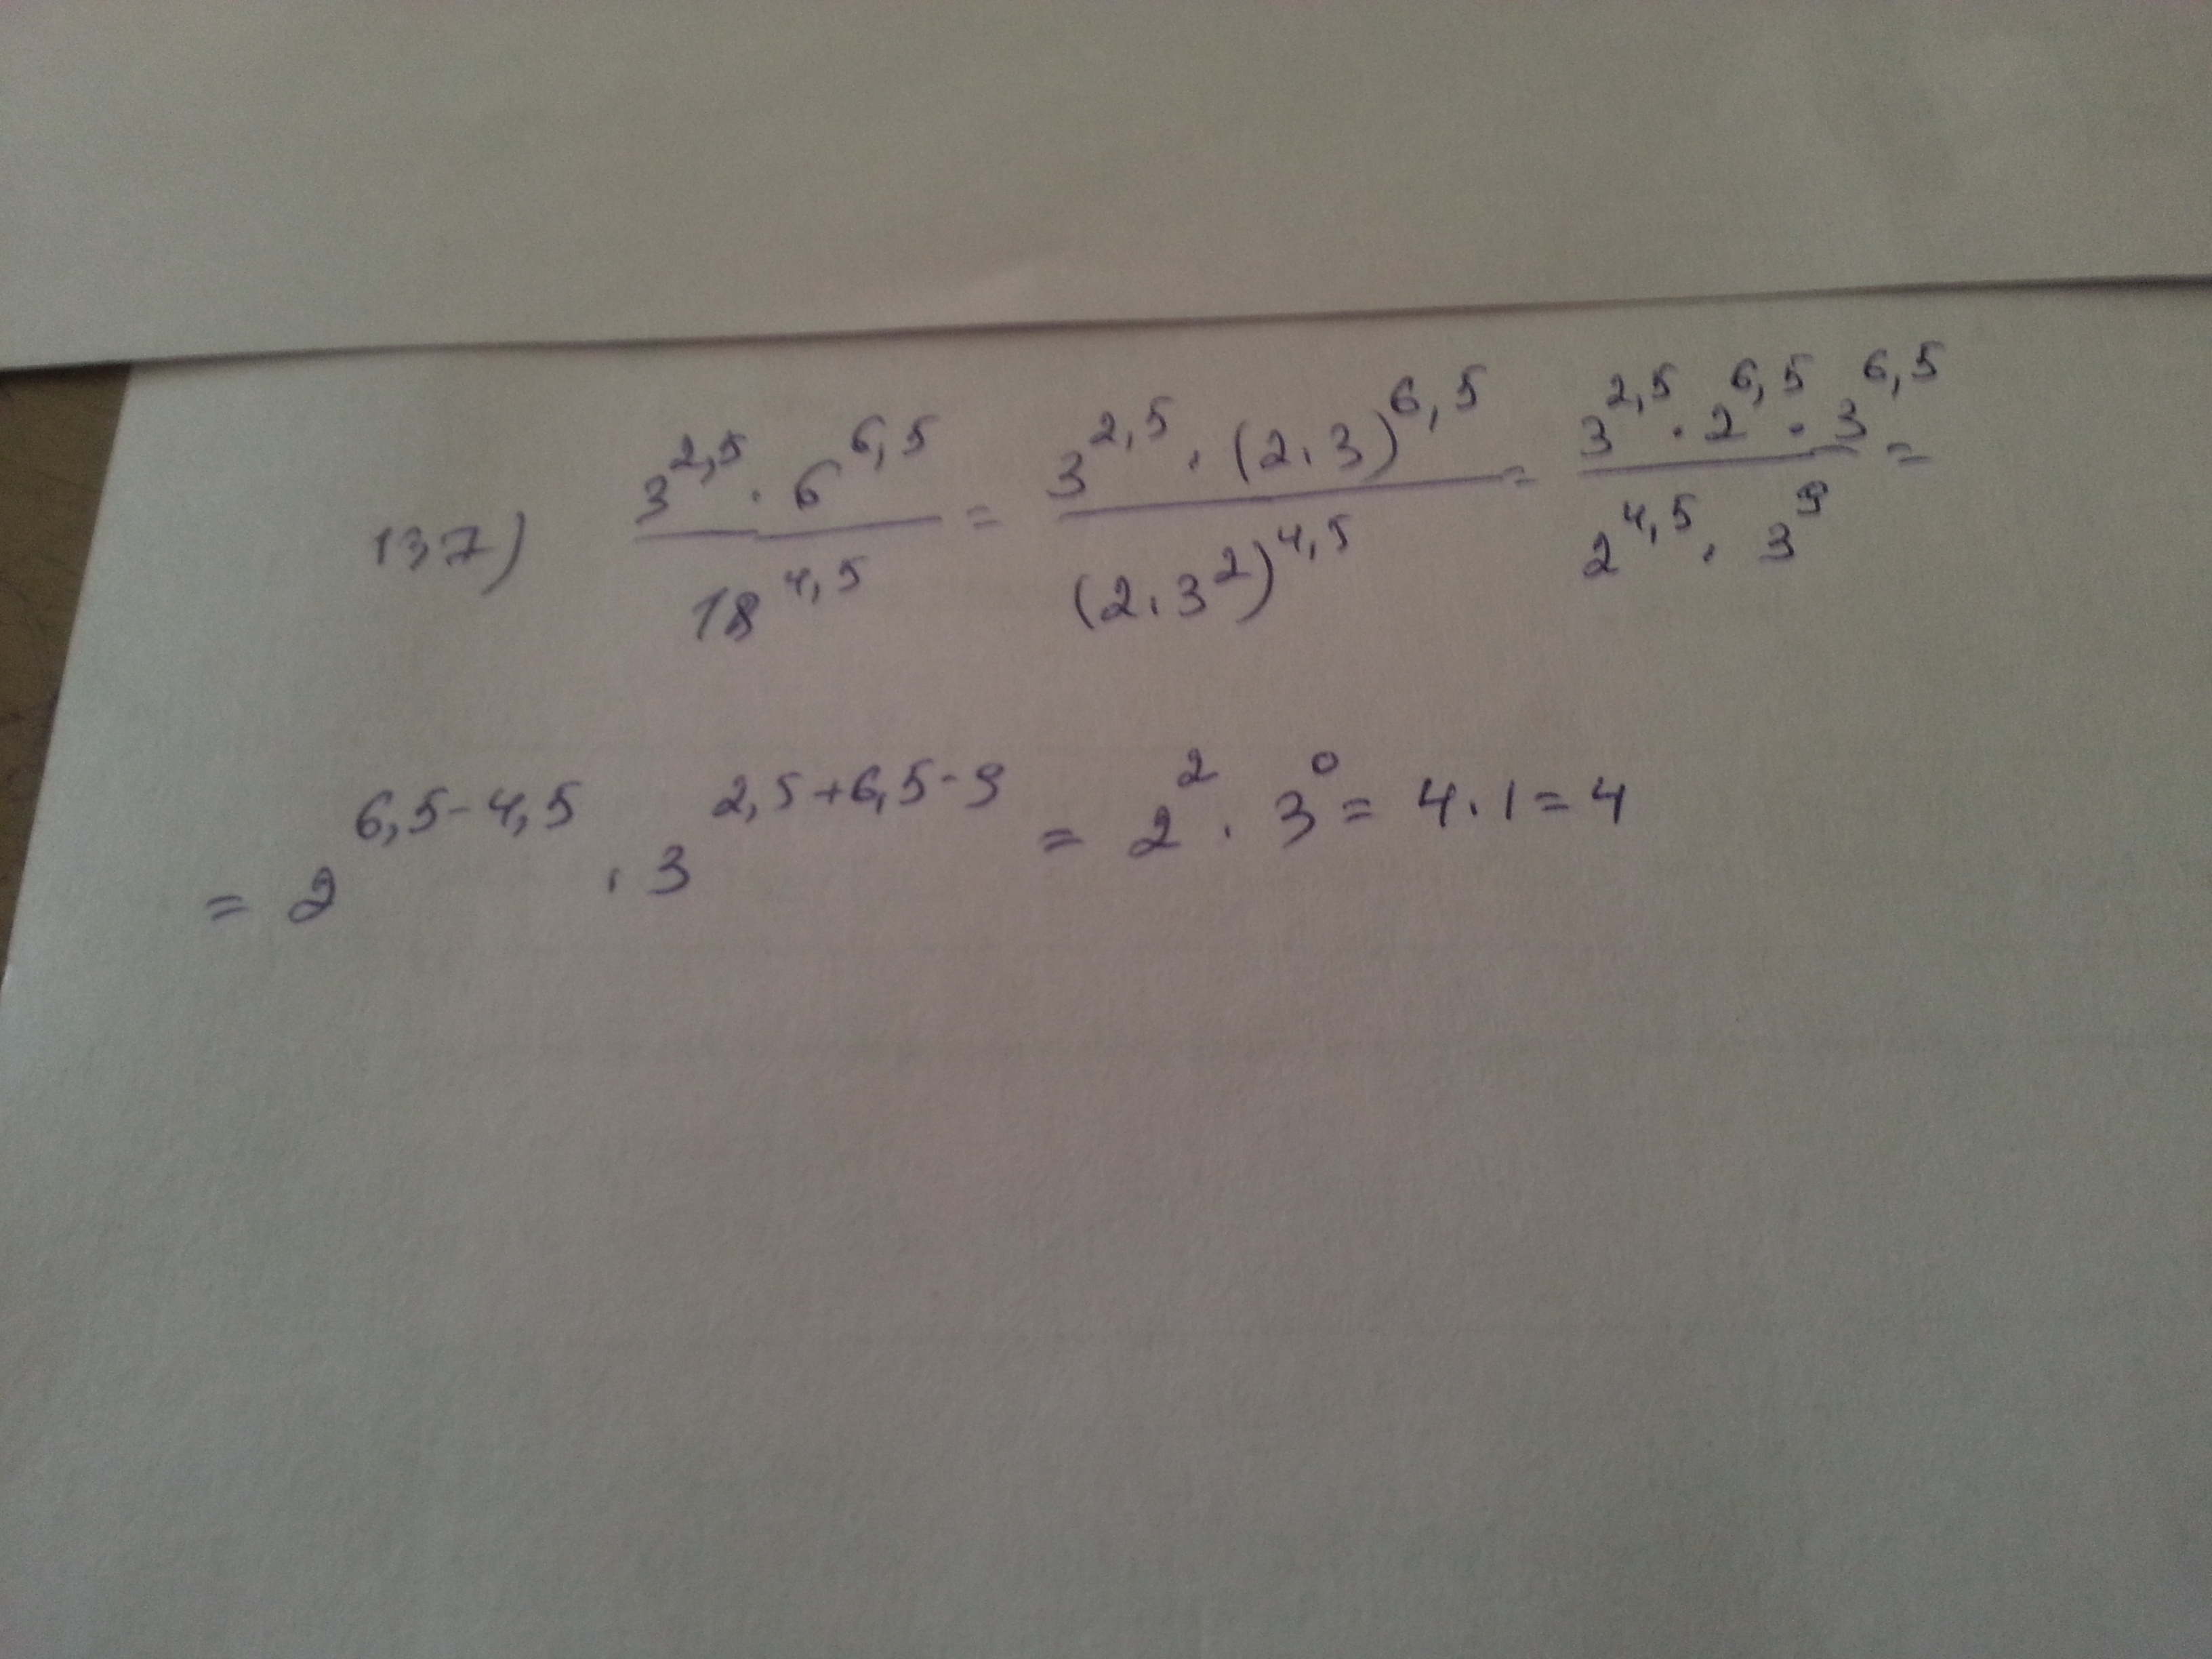 137) \frac{3^{2,5} \cdot 6^{6,5}}{18^{4,5}} = \frac{3^{2,5} \cdot (2 \cdot 3)^{6,5}}{(2 \cdot 3^2)^{4,5}} = \frac{3^{2,5} \cdot 2^{6,5} \cdot 3^{6,5}}{2^{4,5} \cdot 3^9} =
= 2^{6,5-4,5} \cdot 3^{2,5+6,5-9} = 2^2 \cdot 3^0 = 4 \cdot 1 = 4